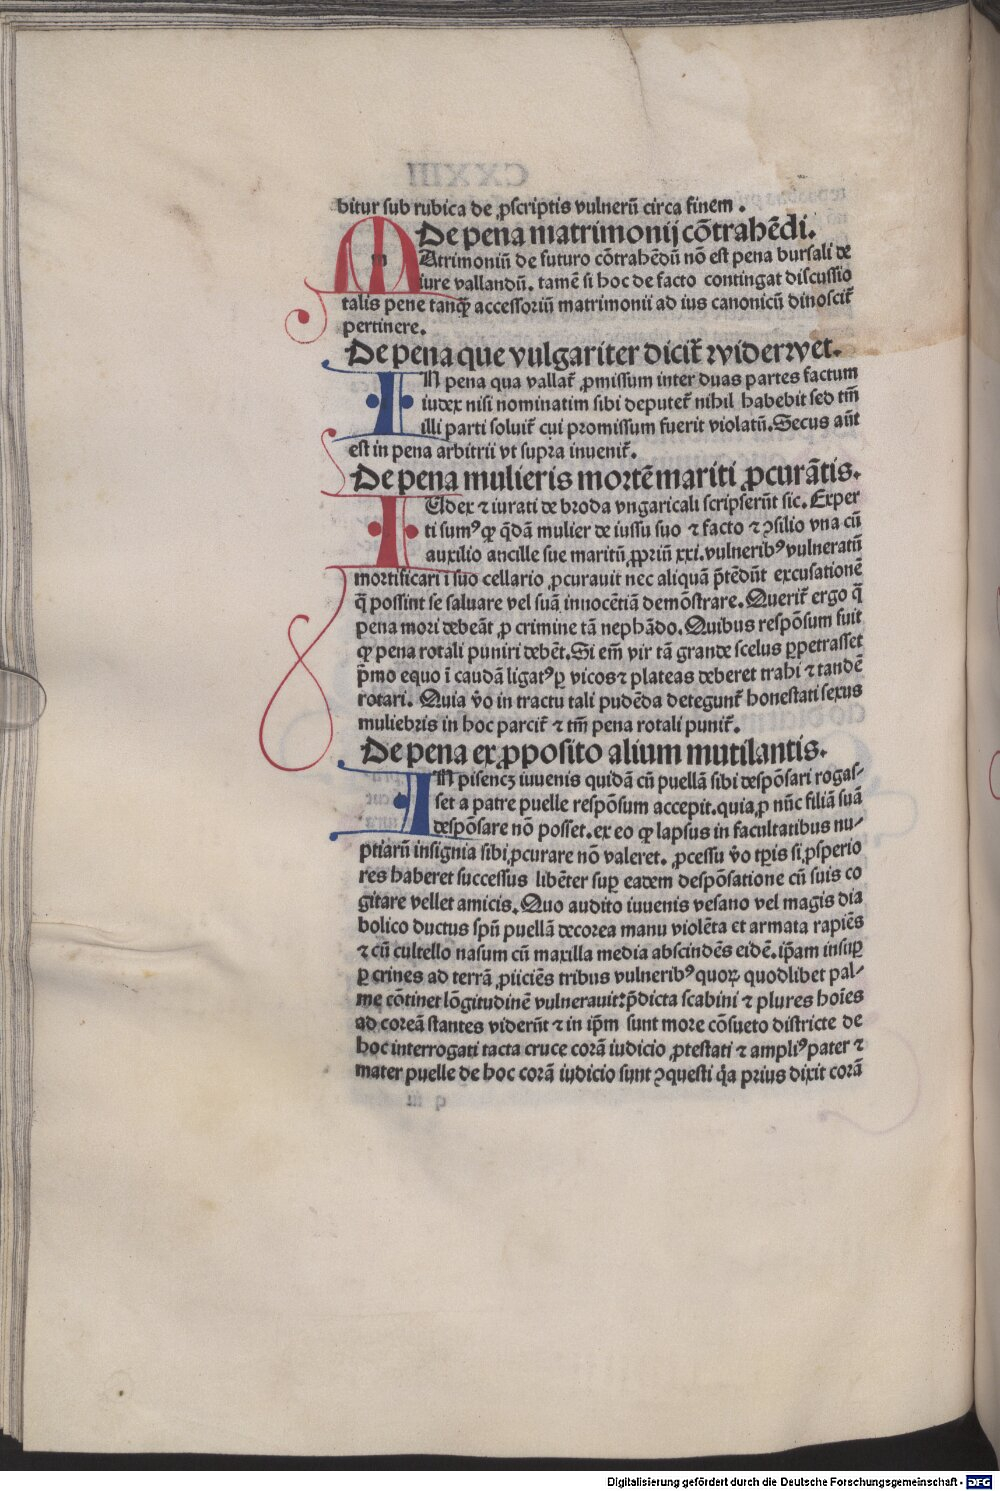 bitur sub rubica de ꝓscriptis vulnerū circa finem .
De pena matrimonij cōtrahēdi.
MAtrimoniū de futuro cōtrahēdū nō est pena bursali de
iure vallandū. tamē si hoc de facto contingat discussio
talis pene tanq̄ʒ accessoriū matrimonii ad ius canonicū dinoscit᷑
pertinere.
De pena que vulgariter dicit᷑ widerwet.
IN pena qua vallat᷑ ꝓmissum inter duas partes factum
iudex nisi nominatim sibi deputet᷑ nihil habebit sed tm̄
illi parti soluit᷑ cui promissum fuerit violatū. Secus aūt
est in pena arbitrii vt supra inuenit᷑.
De pena mulieris mortē mariti ꝓcurātis.
IUdex ⁊ iurati de broda vngaricali scripserūt sic. Exper
ti sumꝰ ꝙ q̄dā mulier de iussu suo ⁊ facto ⁊ ꝯsilio vna cū
auxilio ancille sue maritū ꝓpriū xxi. vulneribꝰ vulneratū
mortificari ī suo cellario ꝓcurauit nec aliquā p̄tēdūt excusationē
q̄ possint se saluare vel suā innocētiā demōstrare. Querit᷑ ergo q̄
pena mori debeāt ꝓ crimine tā nephādo. Quibus respōsum fuit
ꝙ pena rotali puniri debēt. Si em̄ vir tā grande scelus ꝑpetrasset
p̄mo equo ī caudā ligatꝰ ꝑ vicos ⁊ plateas deberet trahi ⁊ tandē
rotari. Quia v̄o in tractu tali pudēda detegunt᷑ honestati sexus
muliebris in hoc parcit᷑ ⁊ tm̄ pena rotali punit᷑.
De pena ex ꝓposito alium mutilantis.
IN pisencʒ iuuenis quidā cū puellā sibi despōsari rogas-
set a patre puelle respōsum accepit. quia ꝓ nūc filiā suā
despōsare nō posset. ex eo ꝙ lapsus in facultatibus nu-
ptiarū insignia sibi ꝓcurare nō valeret. ꝓcessu v̄o tꝑis si ꝓsperio
res haberet successus libēter suꝑ eadem despōsatione cū suis co
gitare vellet amicis. Quo audito iuuenis vesano vel magis dia
bolico ductus spū puellā decorea manu violēta et armata rapiēs
⁊ cū cultello nasum cū maxilla media abscindēs eidē. ip̄am insuꝑ
ꝑ crines ad terrā ꝓiiciēs tribus vulneribꝰ quoꝝ quodlibet pal-
me cōtinet lōgitudinē vulnerauit: p̄dicta scabini ⁊ plures hoīes
ad coreā stantes viderūt ⁊ in ip̄m sunt more cōsueto districte de
hoc interrogati tacta cruce corā iudicio ꝓtestati ⁊ ampliꝰ pater ⁊
mater puelle de hoc corā iudicio sunt ꝯquesti q̇a prius dixit corā
Digitalisierung gefördert durch die Deutsche Forschungsgemeinschaft - DFG